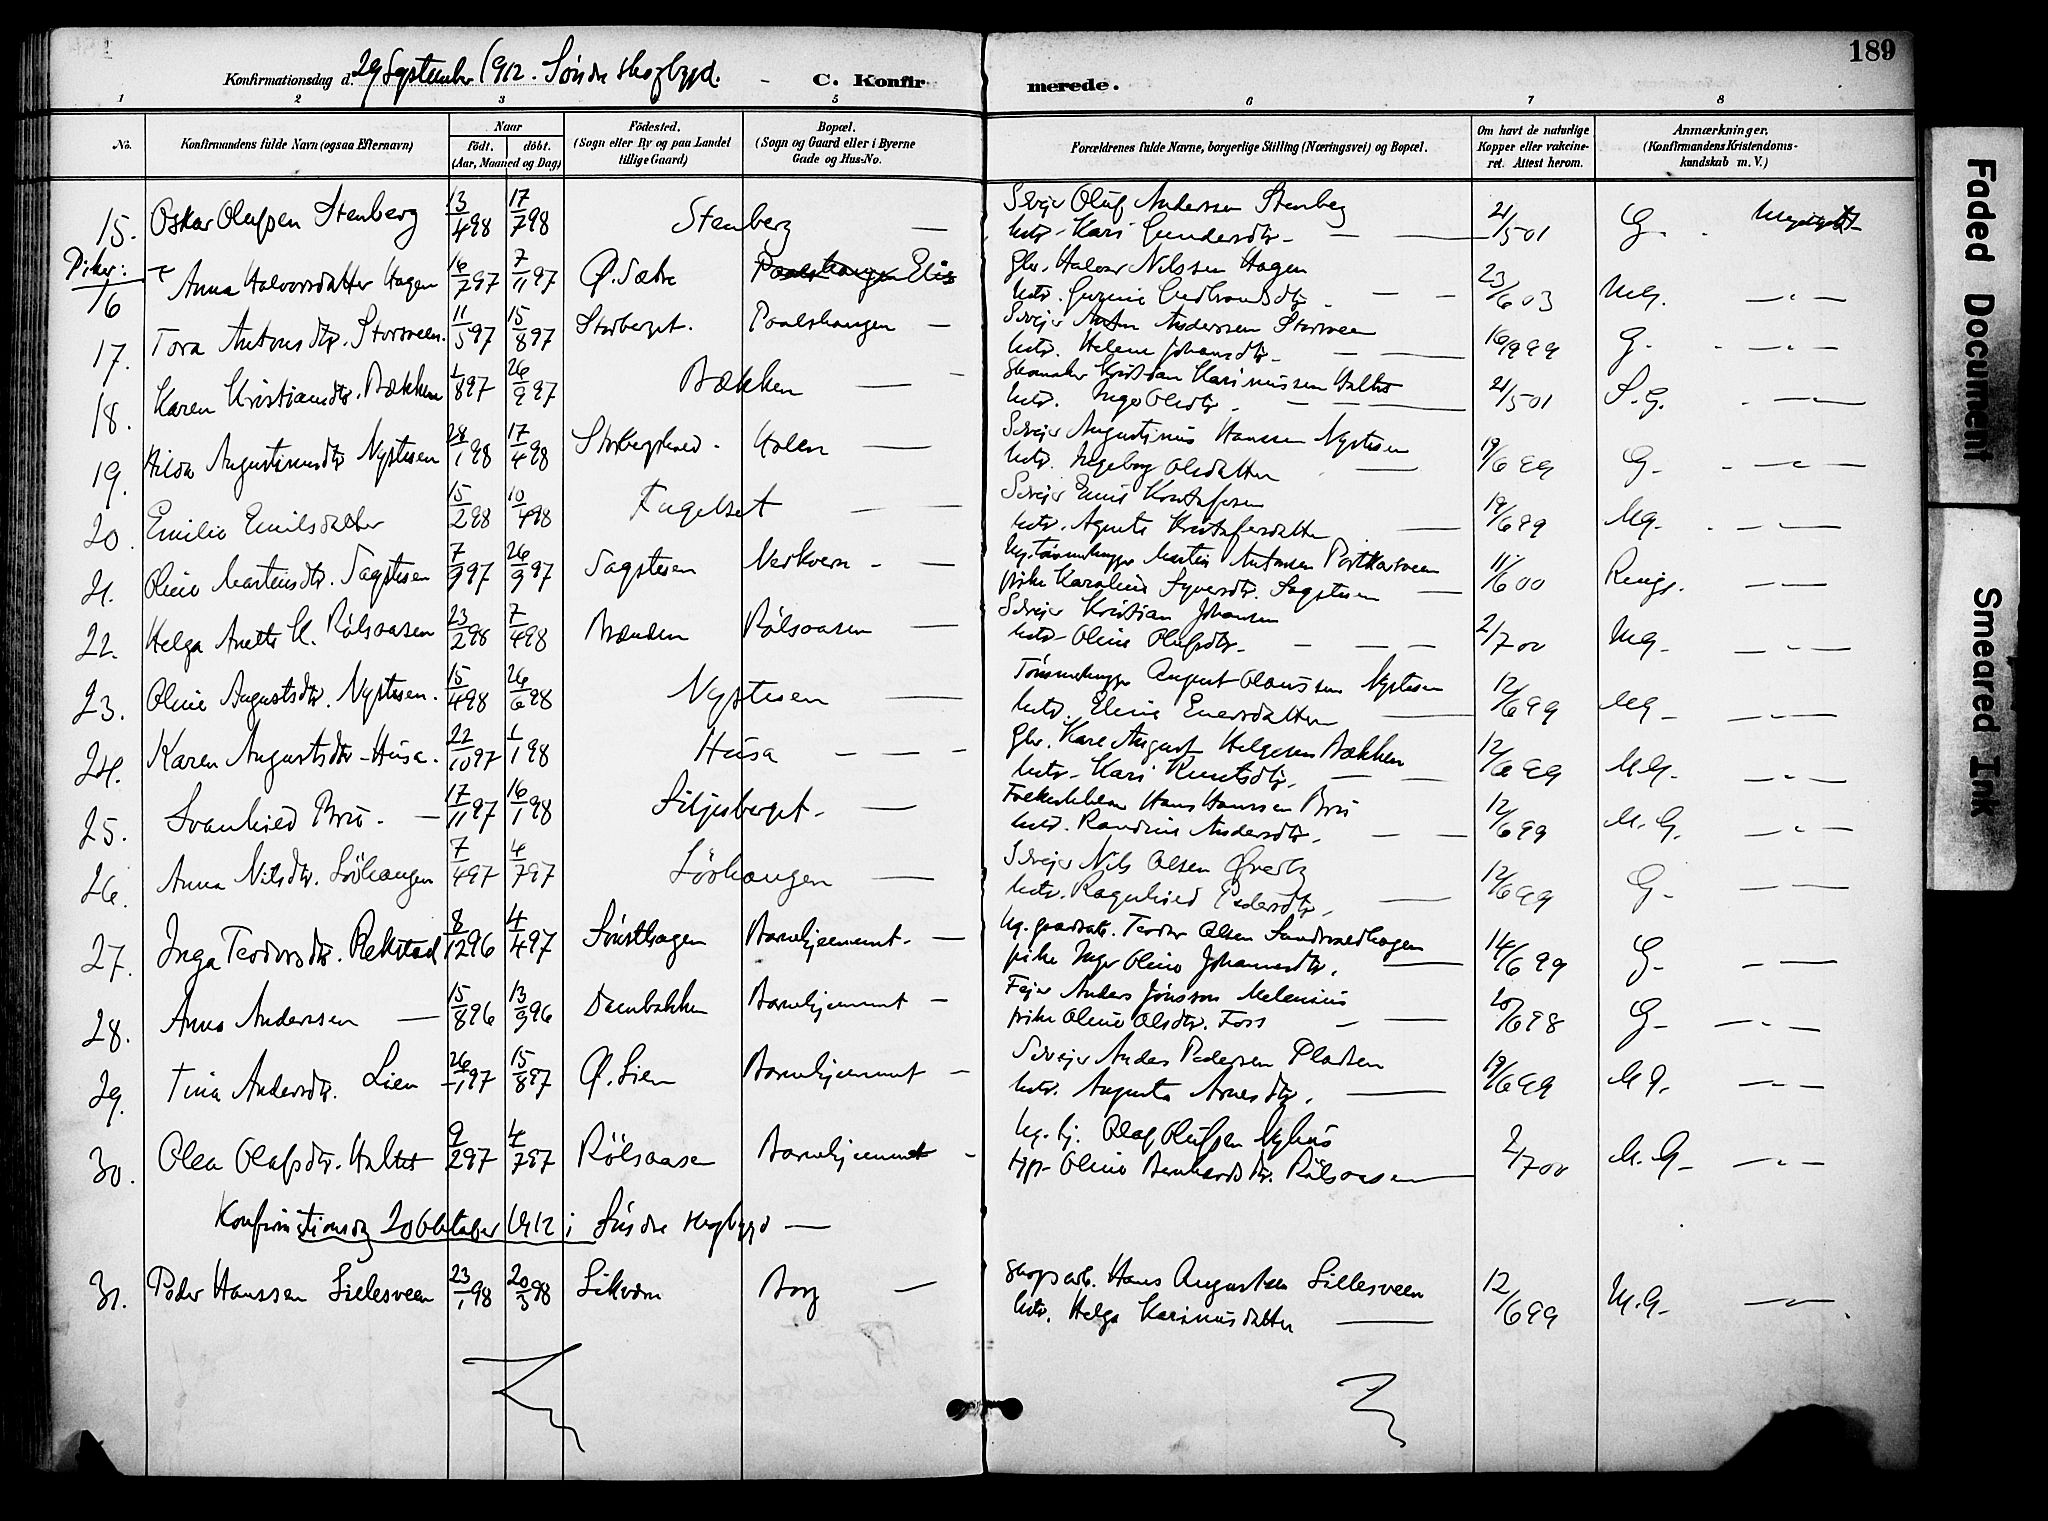 189
Konfirmationsdag d. 29 September 1912. Søndre Skogbygd. - C. Konfirmerede.
1 2 3 5 6 7 8
No.
Konfirmandens fulde Navn (ogsaa Efternavn)
Naar
født. døbt.
(Aar, Maaned og Dag)
Födested.
(Sogn eller By og paa Landet
tillige Gaard)
Bopæl.
(Sogn og Gaard eller i Byerne
Gade og Hus-No.
Forældrenes fulde Navne, borgerlige Stilling (Næringsvei) og Bopæl.
Om havt de naturlige
Kopper eller vakcine-
ret. Attest herom.
Anmærkninger.
(Konfirmandens Kristendoms-
kundskab m. V.)
15. Oskar Olufsen Stenberg 13/4 98 17/7 98 Stenberg — Selvejer Oluf Anderssen Stenberg
hstr. Kari Gundersdtr. — 21/5 01 G.
Piker:
16 Anna Halvorsdatter Hagen 16/7 97 7/11 97 Ø. Sætre Paalshaugen Gbr. Halvor Nilssen Hagen
hstr. Gudbrandsdtr. — 23/6 03 M.G. — " —
17. Tora Antonsdtr. Storsveen. 11/5 97 15/8 97 Storberget. Paalshaugen — Selvejer Anton Anderssen Storsveen
hstr. Helene Johansdtr. — 16/9 99 G. — " —
18. Karen Kristiansdtr. Bækken 1/8 97 26/9 97 Bækken — Skomaker Kristian Karinussen Haltet
hstr. Inger Olsdtr. — 21/5 01 S.G. — " —
19. Hilda Augustinusdtr. Nystuen 28/1 98 17/4 98 Holen — Selvejer Augustinus Hanssen Nystuen
hstr. Ingeborg Olsdatter — 19/6 99 G. — " —
20. Emilie Emilsdatter 15/2 98 10/4 98 Fugelset — Selvejer Emil Kristofersen
hstr. Agnete Kristofersdatter — 19/6 99 M.G. — " —
21. Oline Martinsdtr. Sagstuen 7/9 97 26/9 97 Sagstuen Nerkvern — Ug. Tømmerhugger Martin Antonsen
pike Karoline Syversdtr. Sagstuen — 11/6 00 — —
22. Helga Anette K. Rölsaasen 23/2 98 7/4 98 Brænden Rölsaasen — Selvejer Kristian Johansen
hstr. Oline Olufsdtr. — 2/7 00 M.G. — " —
23. Oline Augustsdtr. Nystuen. 15/4 98 26/6 98 Nystuen — Tømmerhugger August Olaussen Nystuen
hstr. Eline Enersdatter — 12/6 99 M.G. — " —
24. Karen Augustsdtr. Husa. 22/10 97 1/1 98 Husa — Gbr. Karl August Helgesen Bækken
hstr. Kari Knutsdtr. — 12/6 99 M.G. — " —
25. Svanhild Bru. — 17/11 97 16/1 98 Siljuberget. — Hans Hanssen Bru
hstr. Randine Andersdtr. — 12/6 99 M.G. — " —
26. Anna Nilsdtr. Lövhaugen 7/4 97 4/7 97 Lövhaugen — Selvejer Nils Olsen Øverby
hstr. Ragnhild Pedersdtr. — 12/6 99 G. — —
27. Inga Teodorsdtr. Rekstad 8/12 96 4/4 97 Barnehjemmet. — Ug. gaardarb. Teodor Olsen
pike Inger Oline Johannesdtr. — 14/6 99 G. — —
28. Anna Anderssen — 15/8 96 13/9 96 Dambakken Barnehjemmet — Fejer Anders Jønsson Melenius
pike Oline Olsdtr. Foss — 20/6 98 G. — " —
29. Tina Andersdtr. Lien 26/1 97 15/8 97 Ø. Lien Barnehjemmet — Selvejer Anders Pedersen Pladsen
hstr. Augusta Arnesdtr. — 19/6 99 M.G. — " —
30. Olea Olafsdtr. Haltet 9/2 97 4/7 97 Rölsaasen Barnehjemmet — Ug. Olaf Olufsen Nyhus
Oline Bernhardsdtr. Rölsaasen — 2/7 00 M.G. — " —
Konfirmationsdag 20 Oktober 1912 i Søndre Skogbygd —
31. Peder Hanssen Lillesveen 23/1 98 20/3 98 Likvern Borg — Skogsarb. Hans Augustsen Lillesveen
hstr. Helga Karinusdatter — 12/6 99 M.G. — " —
Faded Document
Smeared Ink